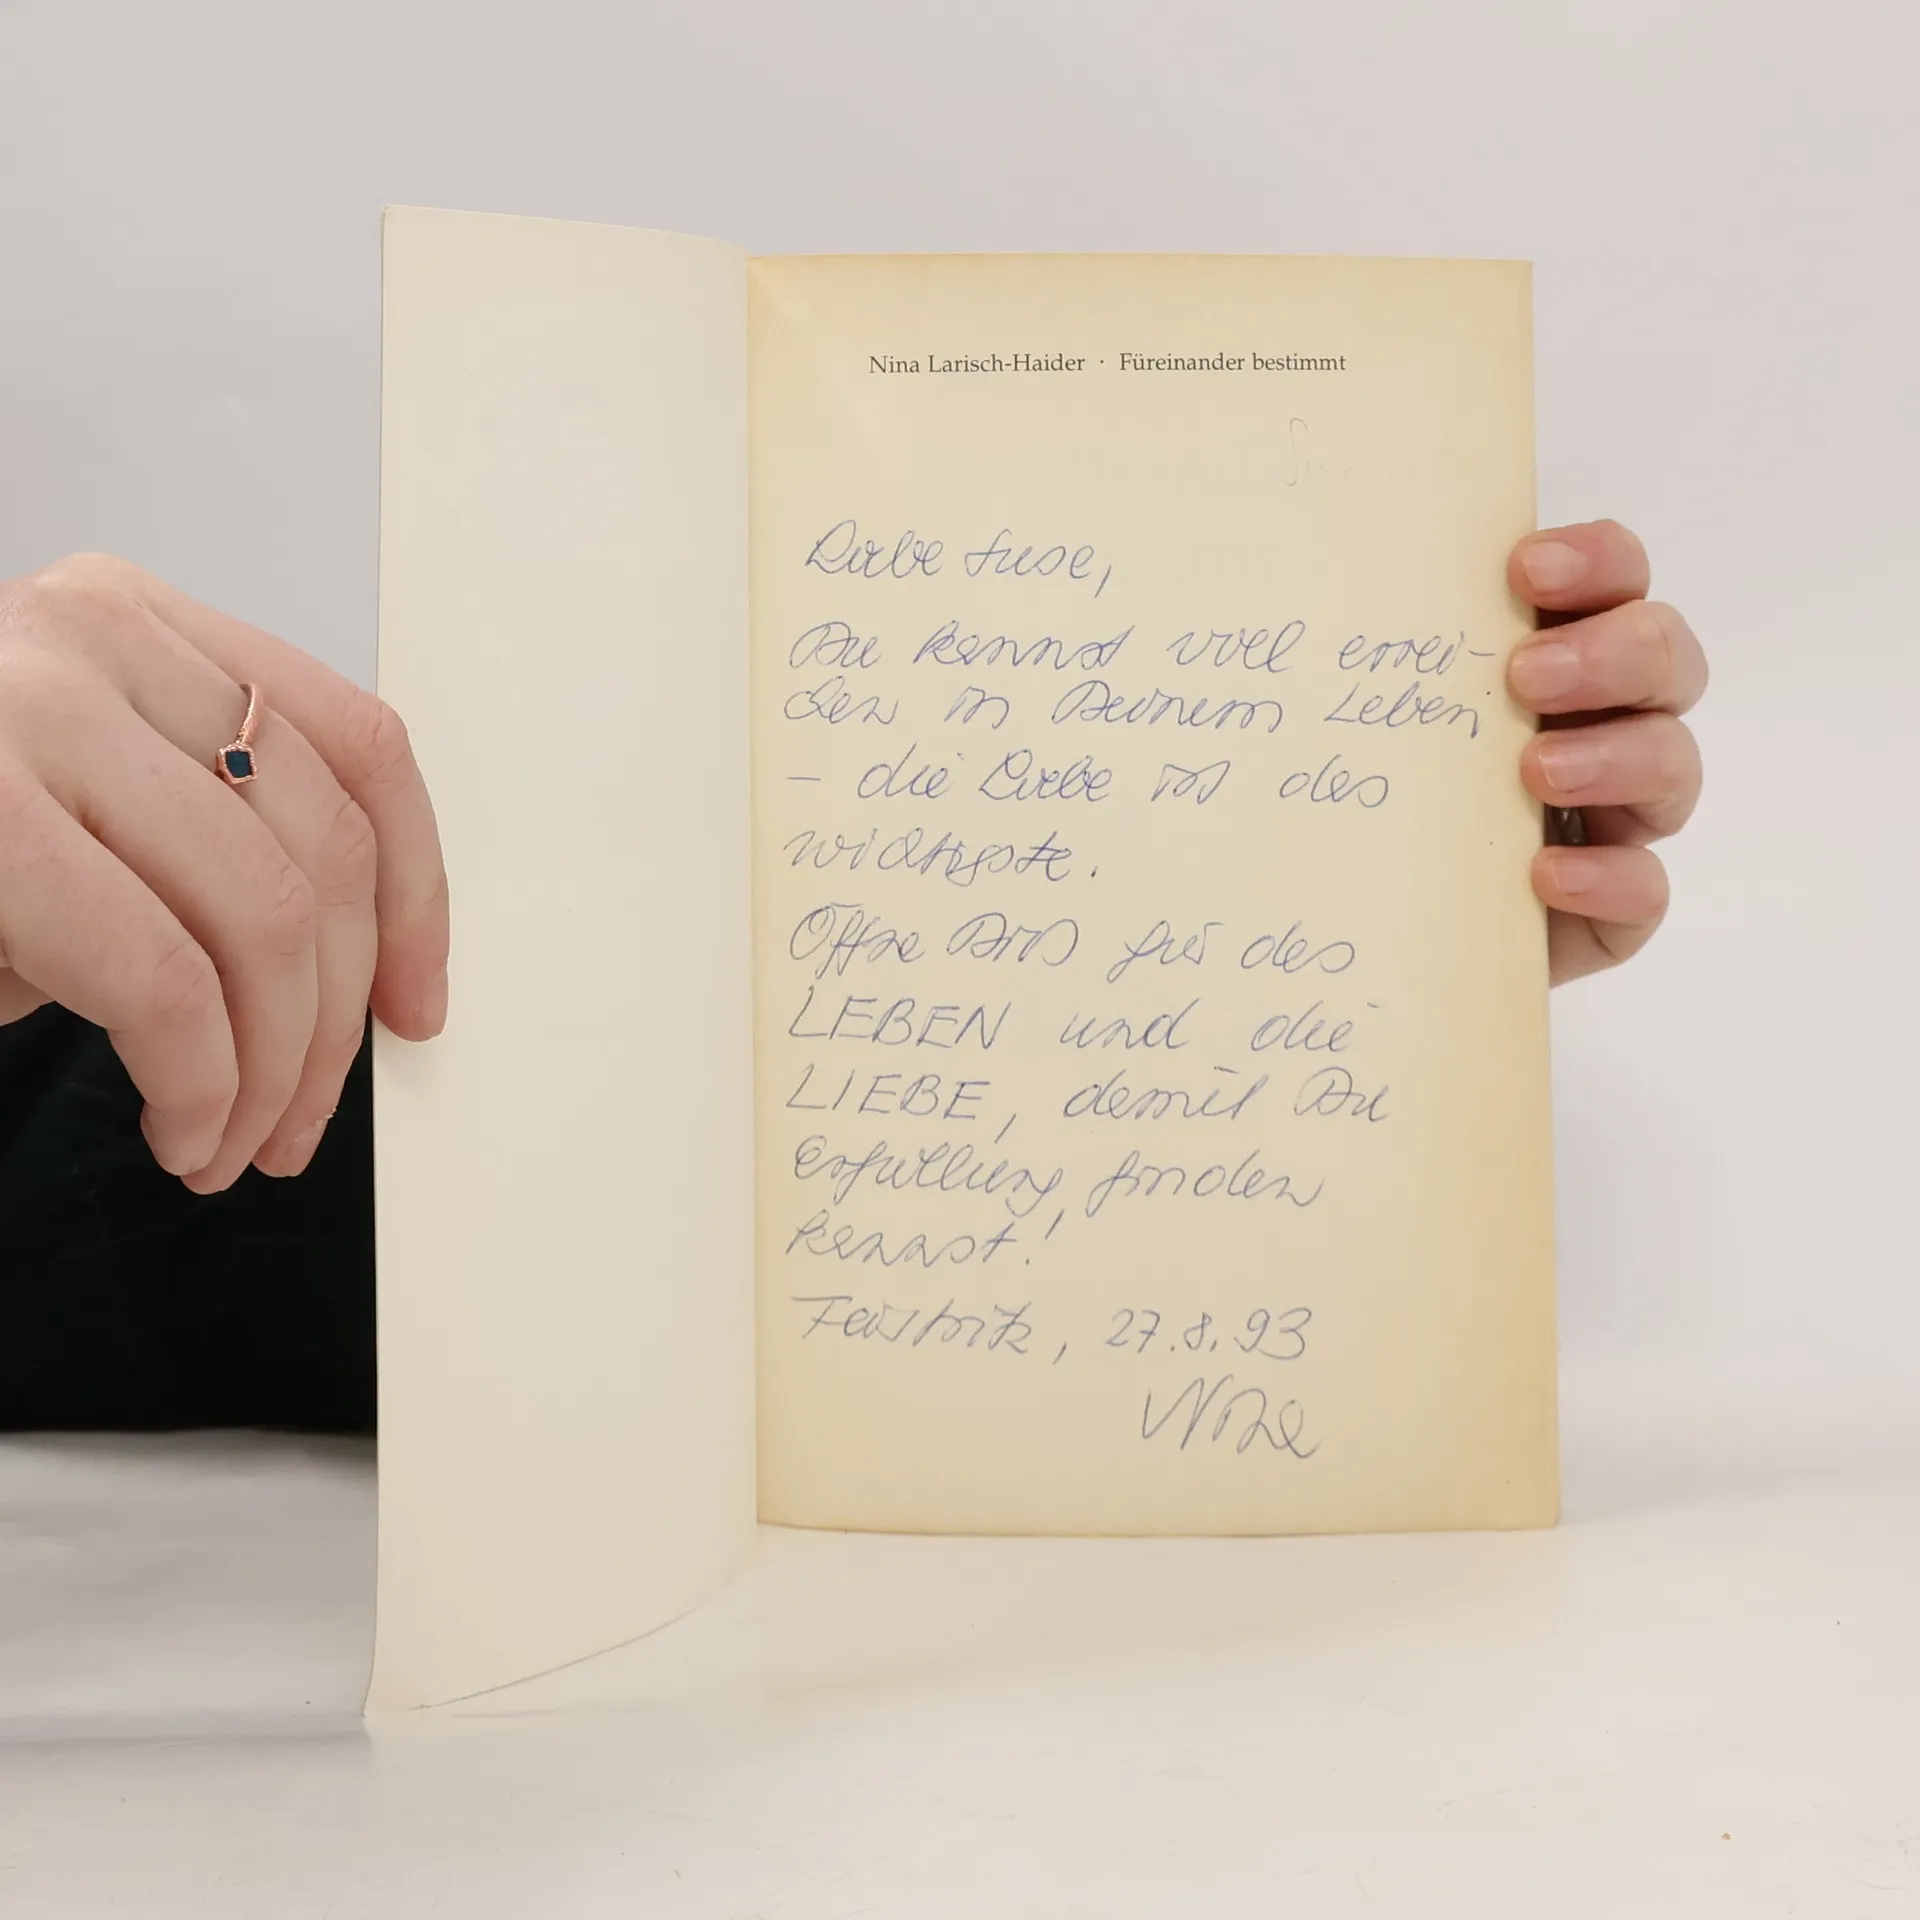 Nina Larisch-Haider · Füreinander bestimmt
Liebe Suse,
Du kannst viel errei-
chen in Deinem Leben
– die Liebe ist das
wichtigste.
Öffne Dich für das
LEBEN und die
LIEBE, damit Du
Erfüllung finden
kannst!
Feistritz, 27.8.93
Nina